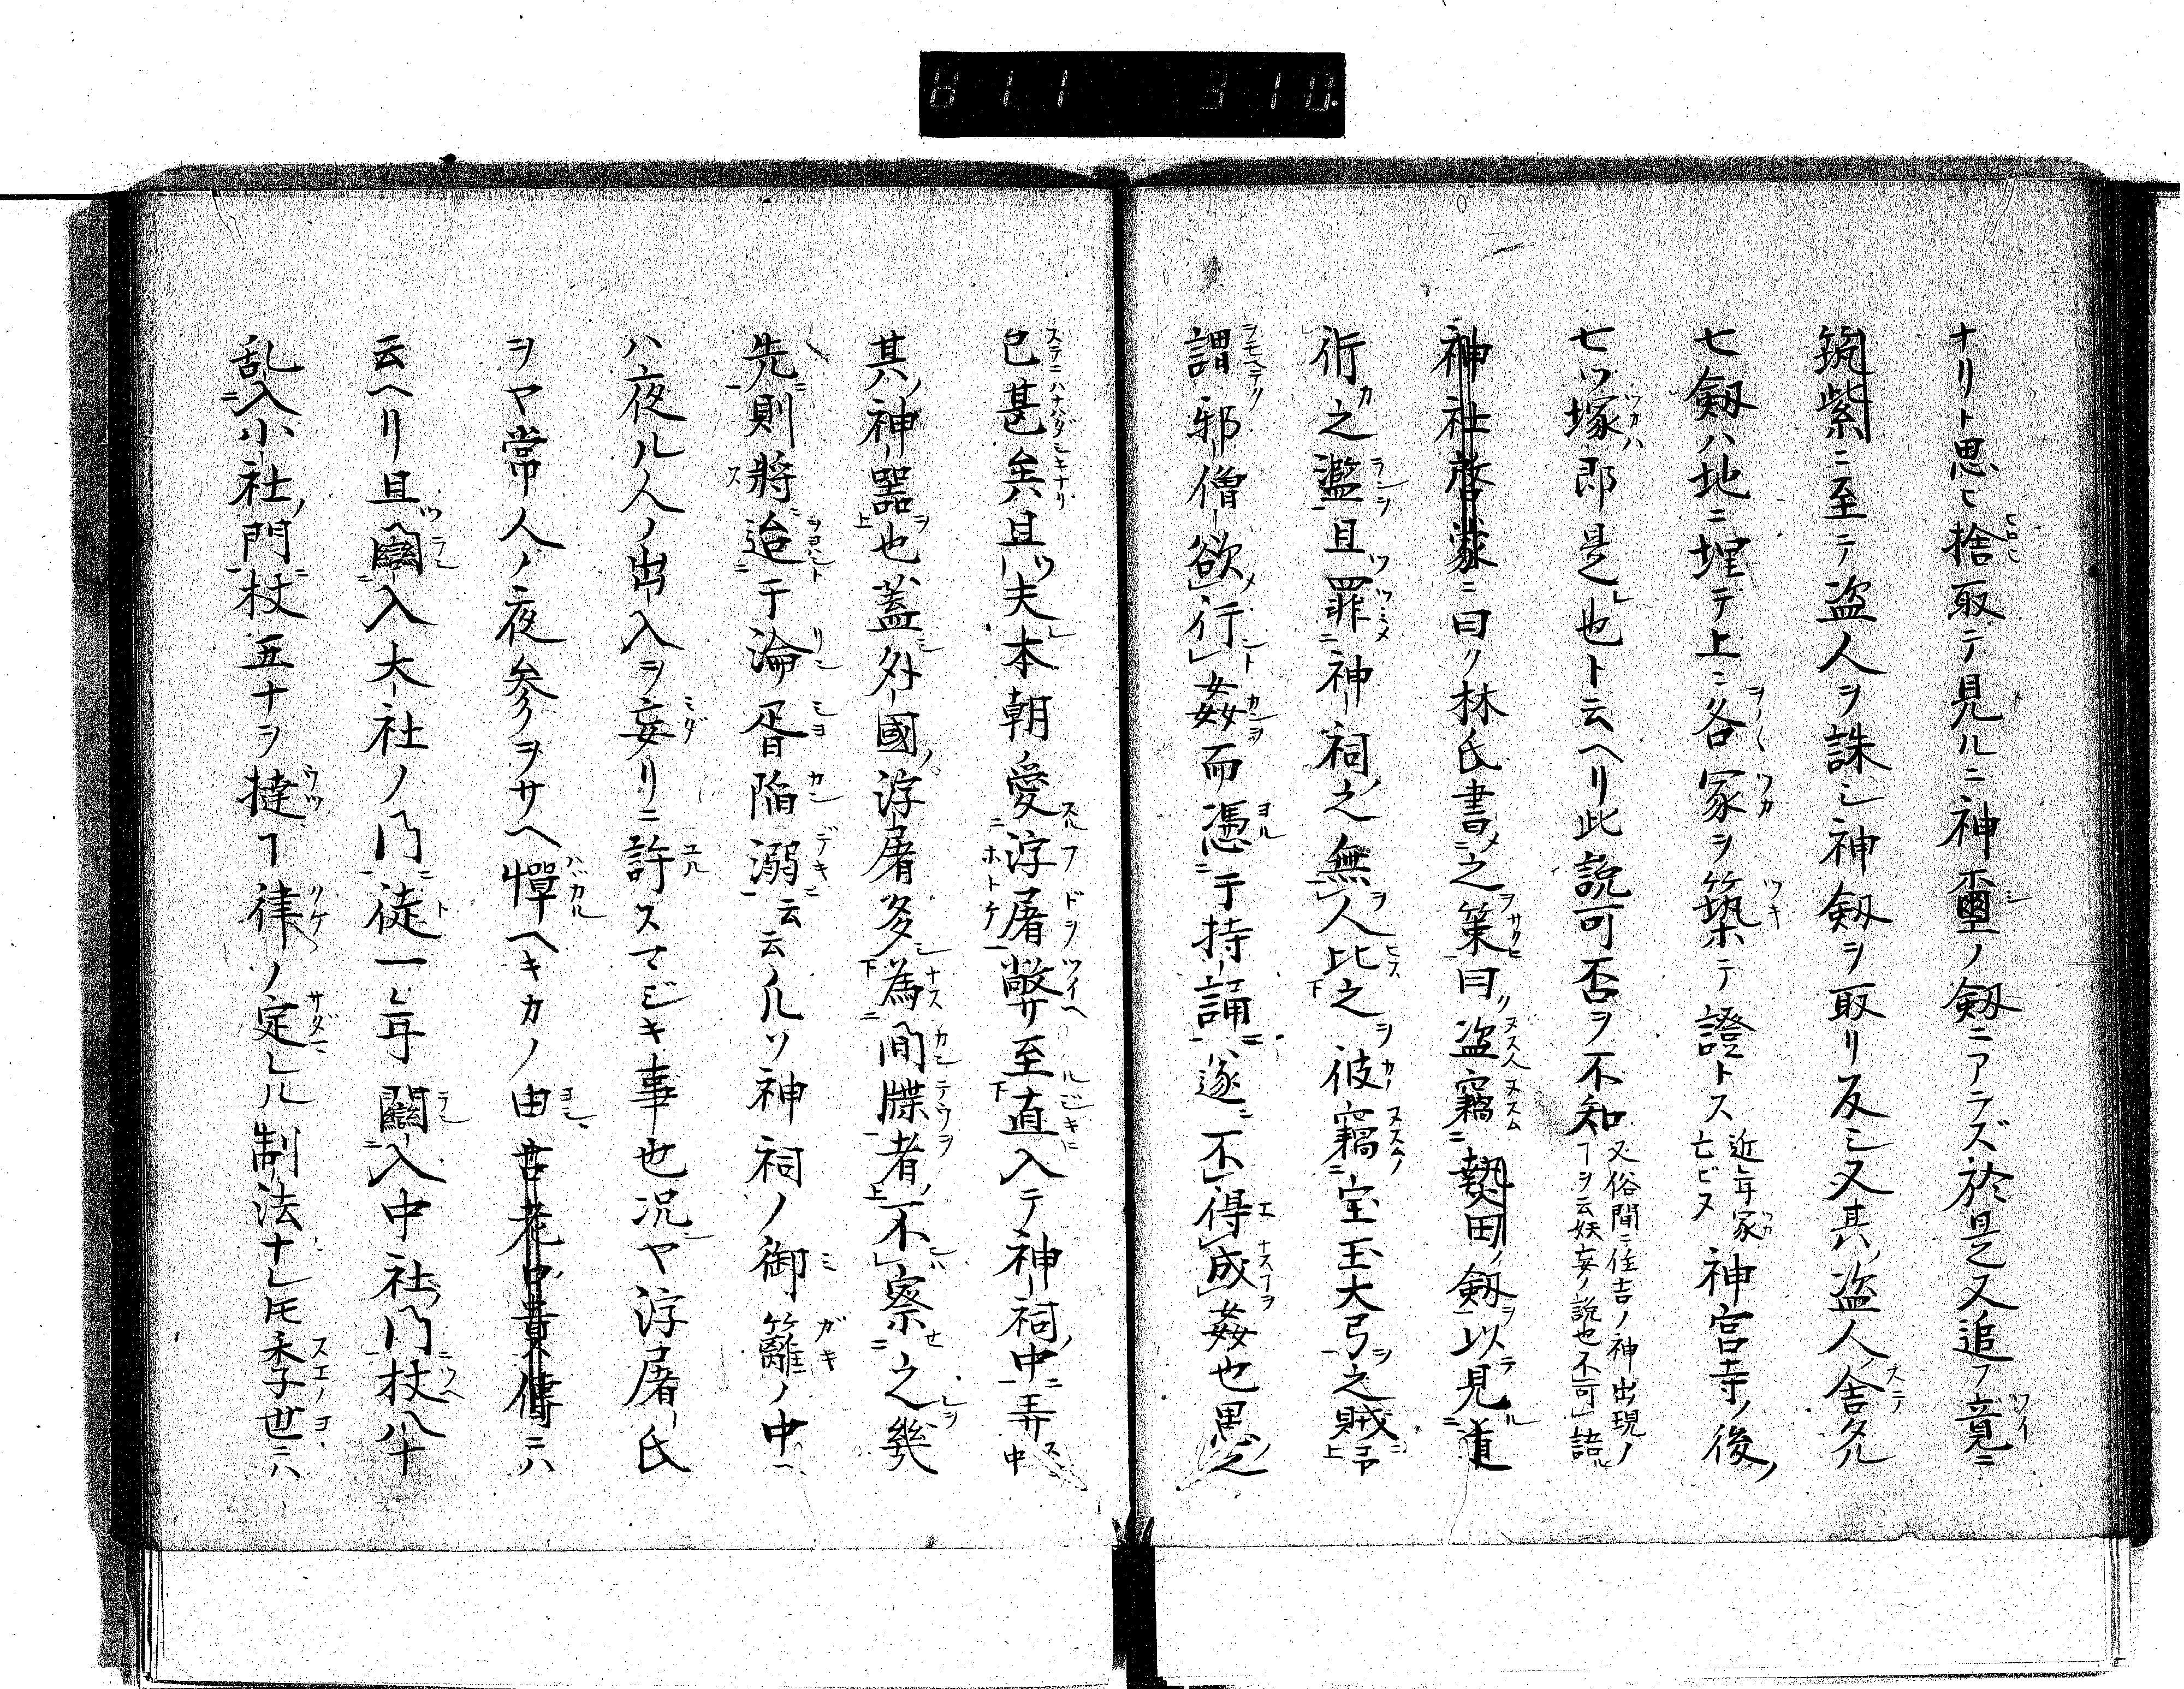 811 310.
ナリト思ヒ捨取テ見ルニ神璽ノ劔ニアラズ於是又追フ竟ニ
筑紫ニ至テ盗人ヲ誅シ神劔ヲ取リ反シ又其ノ盗人ノ舎タル
七劔ハ地ニ埋テ上ニ各冢ヲ築テ證トス近年冢亡ビヌ神宮寺ノ後ノ
七ツ塚即是也ト云ヘリ此説可否ヲ不知又俗間ニ住吉ノ神出現ノヿヲ云妖妄ノ説也不可語
神社啓蒙ニ曰ク林氏書之策曰盗竊熱田ノ劔以見道
術之濫且罪神祠之無人比之彼竊宝玉大弓之賊予
謂邪僧欲行姦而憑于持誦遂ニ不得成姦也愚之
已甚矣且夫本朝愛浮屠弊至直入テ神祠ノ中弄中
其ノ神器也蓋外國ノ浮屠多為間牒者不察之幾
先則將迨于淪胥陥溺云云凡ソ神祠ノ御籬ノ中ヘ
ハ夜ル人ノ出入ヲ妄リニ許スマジキ事也況ヤ浮屠氏
ヲヤ常人ノ夜参ヲサヘ憚ヘキカノ由古老口貴傳ニハ
云ヘリ且闌入大社ノ門徒一年闌入中社門杖八十
乱入小社ノ門杖五十ヲ撻ヿ律ノ定シル制法ナレ𪜈季世ニハ